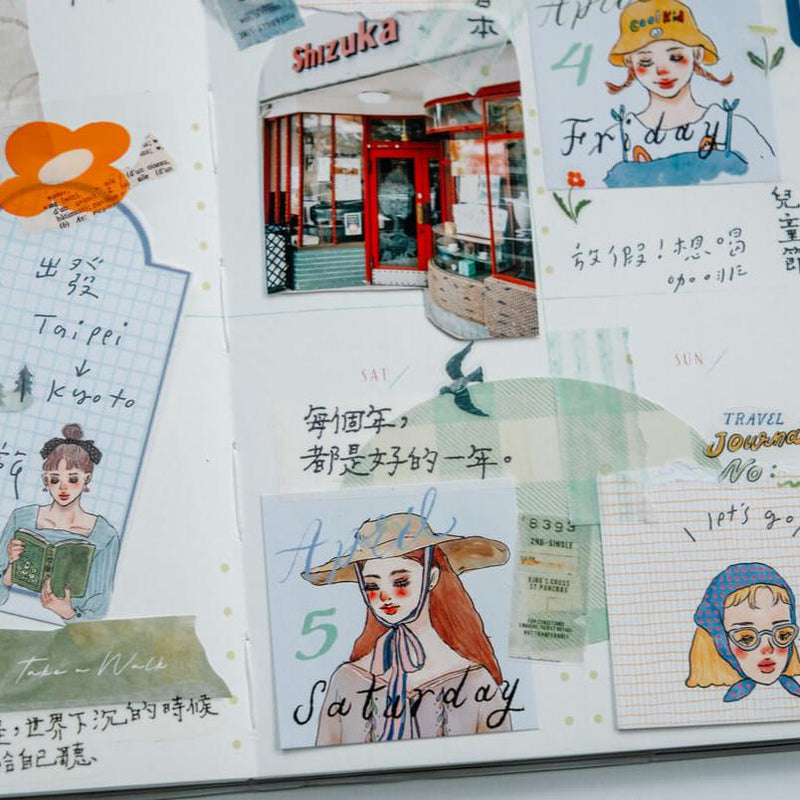 出發
Taipei
↓
Kyoto
Take a Walk
世界下沉的時候
給自己聽
本
Shizuka
SAT
每個年，
都是好的一年。
April
5
Saturday
8393
2ND-SINGLE
KING'S CROSS
ST PANCRAS
April
Cool Kid
4
Friday
放假！想喝
咖啡
兒
童
節
SUN
TRAVEL
Journal
No:
let's go